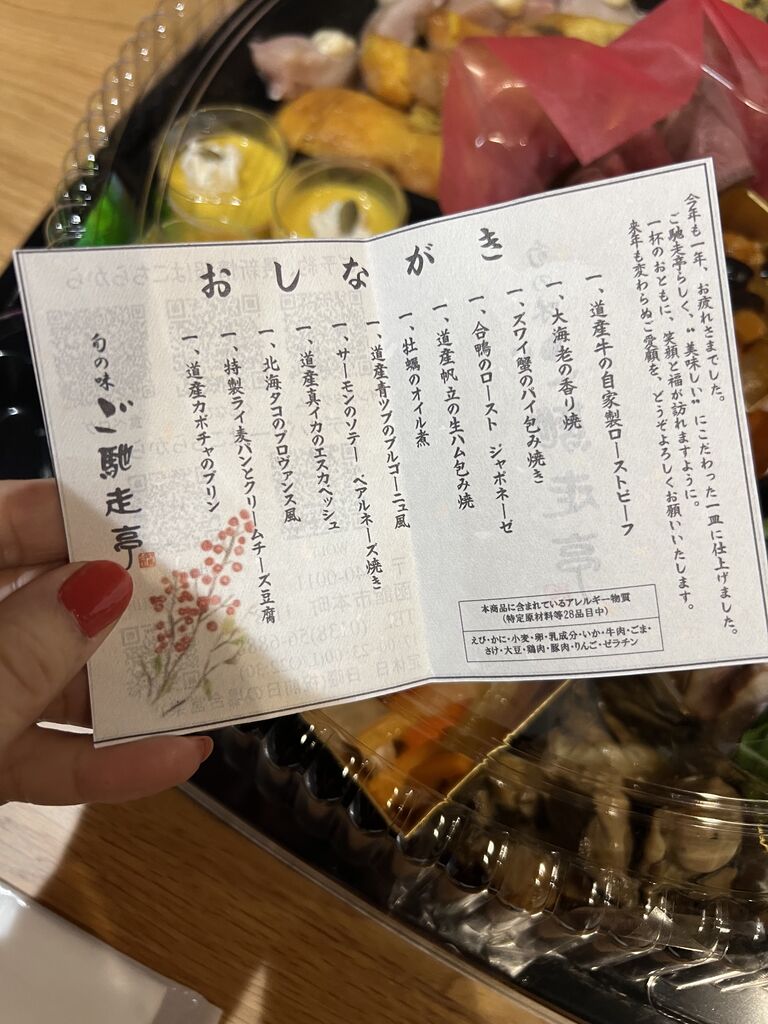 今年も一年、お疲れさまでした。
ご馳走亭らしく、〝美味しい〟にこだわった一皿に仕上げました。
一杯のおともに、笑顔と福が訪れますように。
来年も変わらぬご愛顧を、どうぞよろしくお願いいたします。
おしながき
一、道産牛の自家製ローストビーフ
一、大海老の香り焼
一、ズワイ蟹のパイ包み焼き
一、合鴨のロースト ジャポネーゼ
一、道産帆立の生ハム包み焼
一、牡蠣のオイル煮
一、道産青ツブのブルゴーニュ風
一、サーモンのソテー ベアルネーズ焼き
一、道産真イカのエスカベッシュ
一、北海タコのプロヴァンス風
一、特製ライ麦パンとクリームチーズ豆腐
一、道産カボチャのプリン
旬の味
ご馳走亭
本商品に含まれているアレルギー物質
(特定原材料等28品目中)
えび・かに・小麦・卵・乳成分・いか・牛肉・ごま・
さけ・大豆・鶏肉・豚肉・りんご・ゼラチン